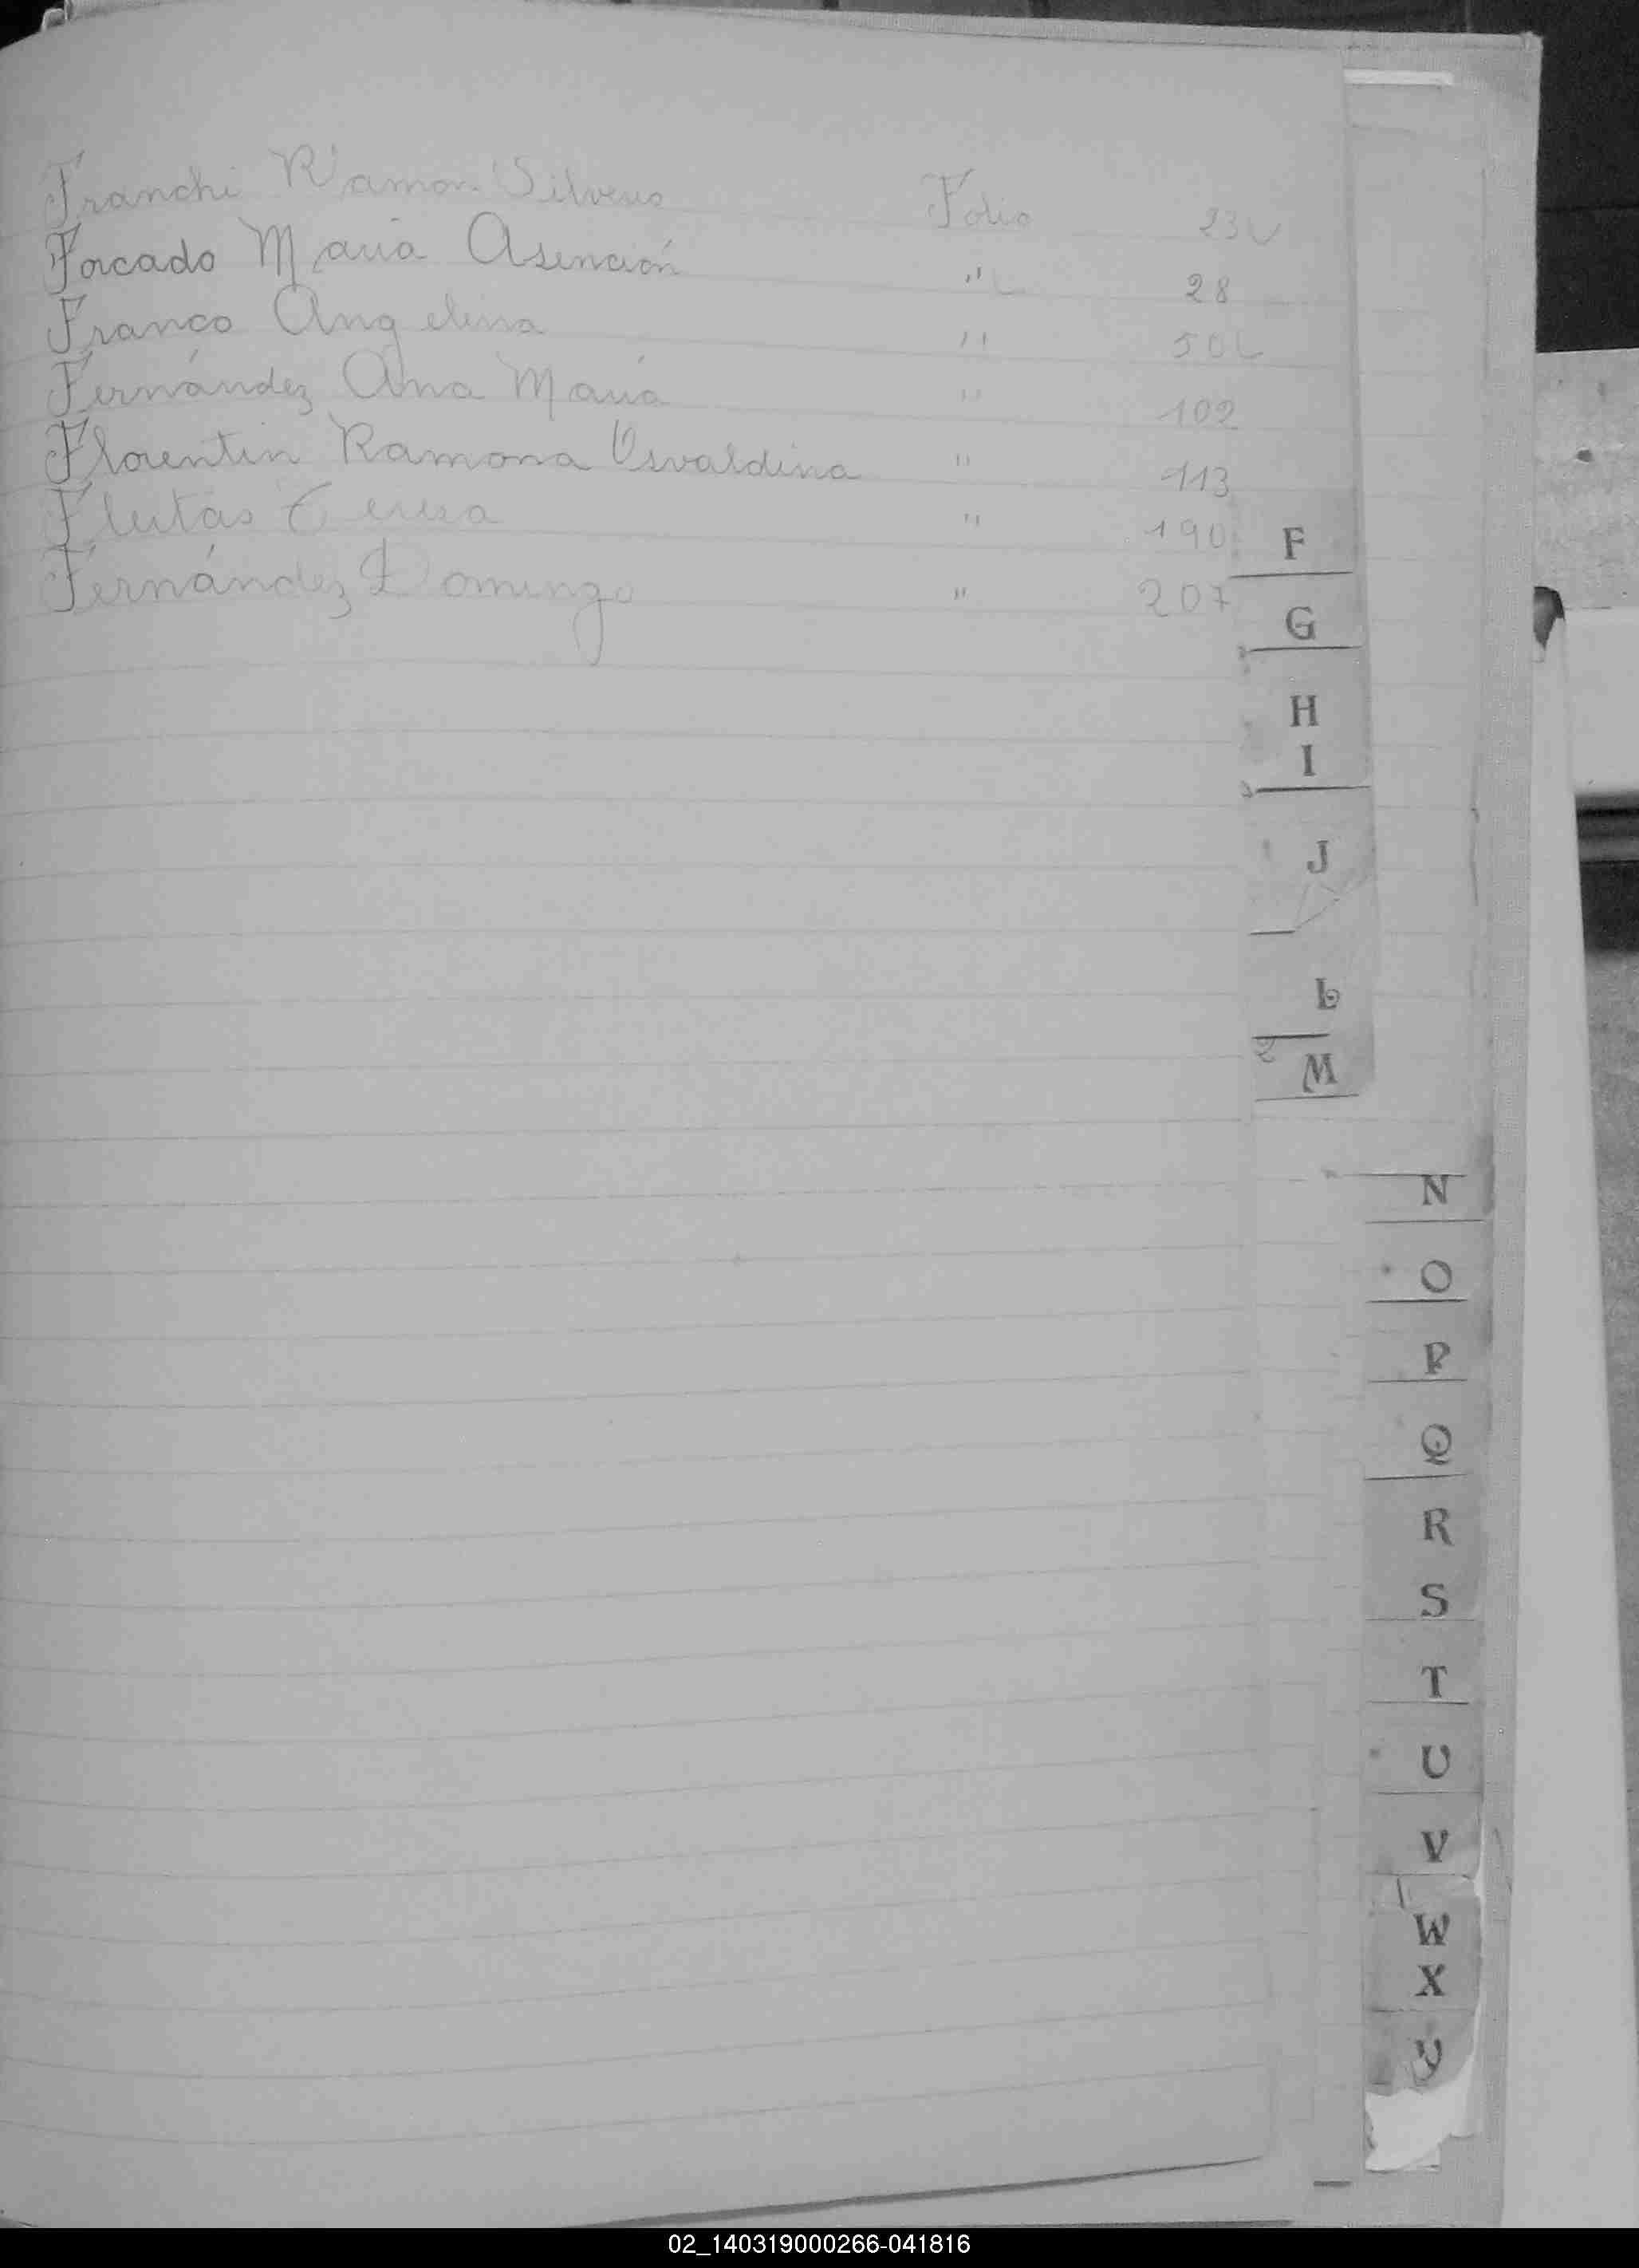 Franchi Ramon Silverio Folio 23v
Forcado Maria Asención " 28
Franco Angelina " 50
Fernández Ana María " 102
Florentin Ramona Osvaldina " 113
Fleitas Teresa " 190
Fernández Domingo " 207
F
G
H
I
J
L
M
N
O
P
Q
R
S
T
U
V
W
X
Y
02_140319000266-041816